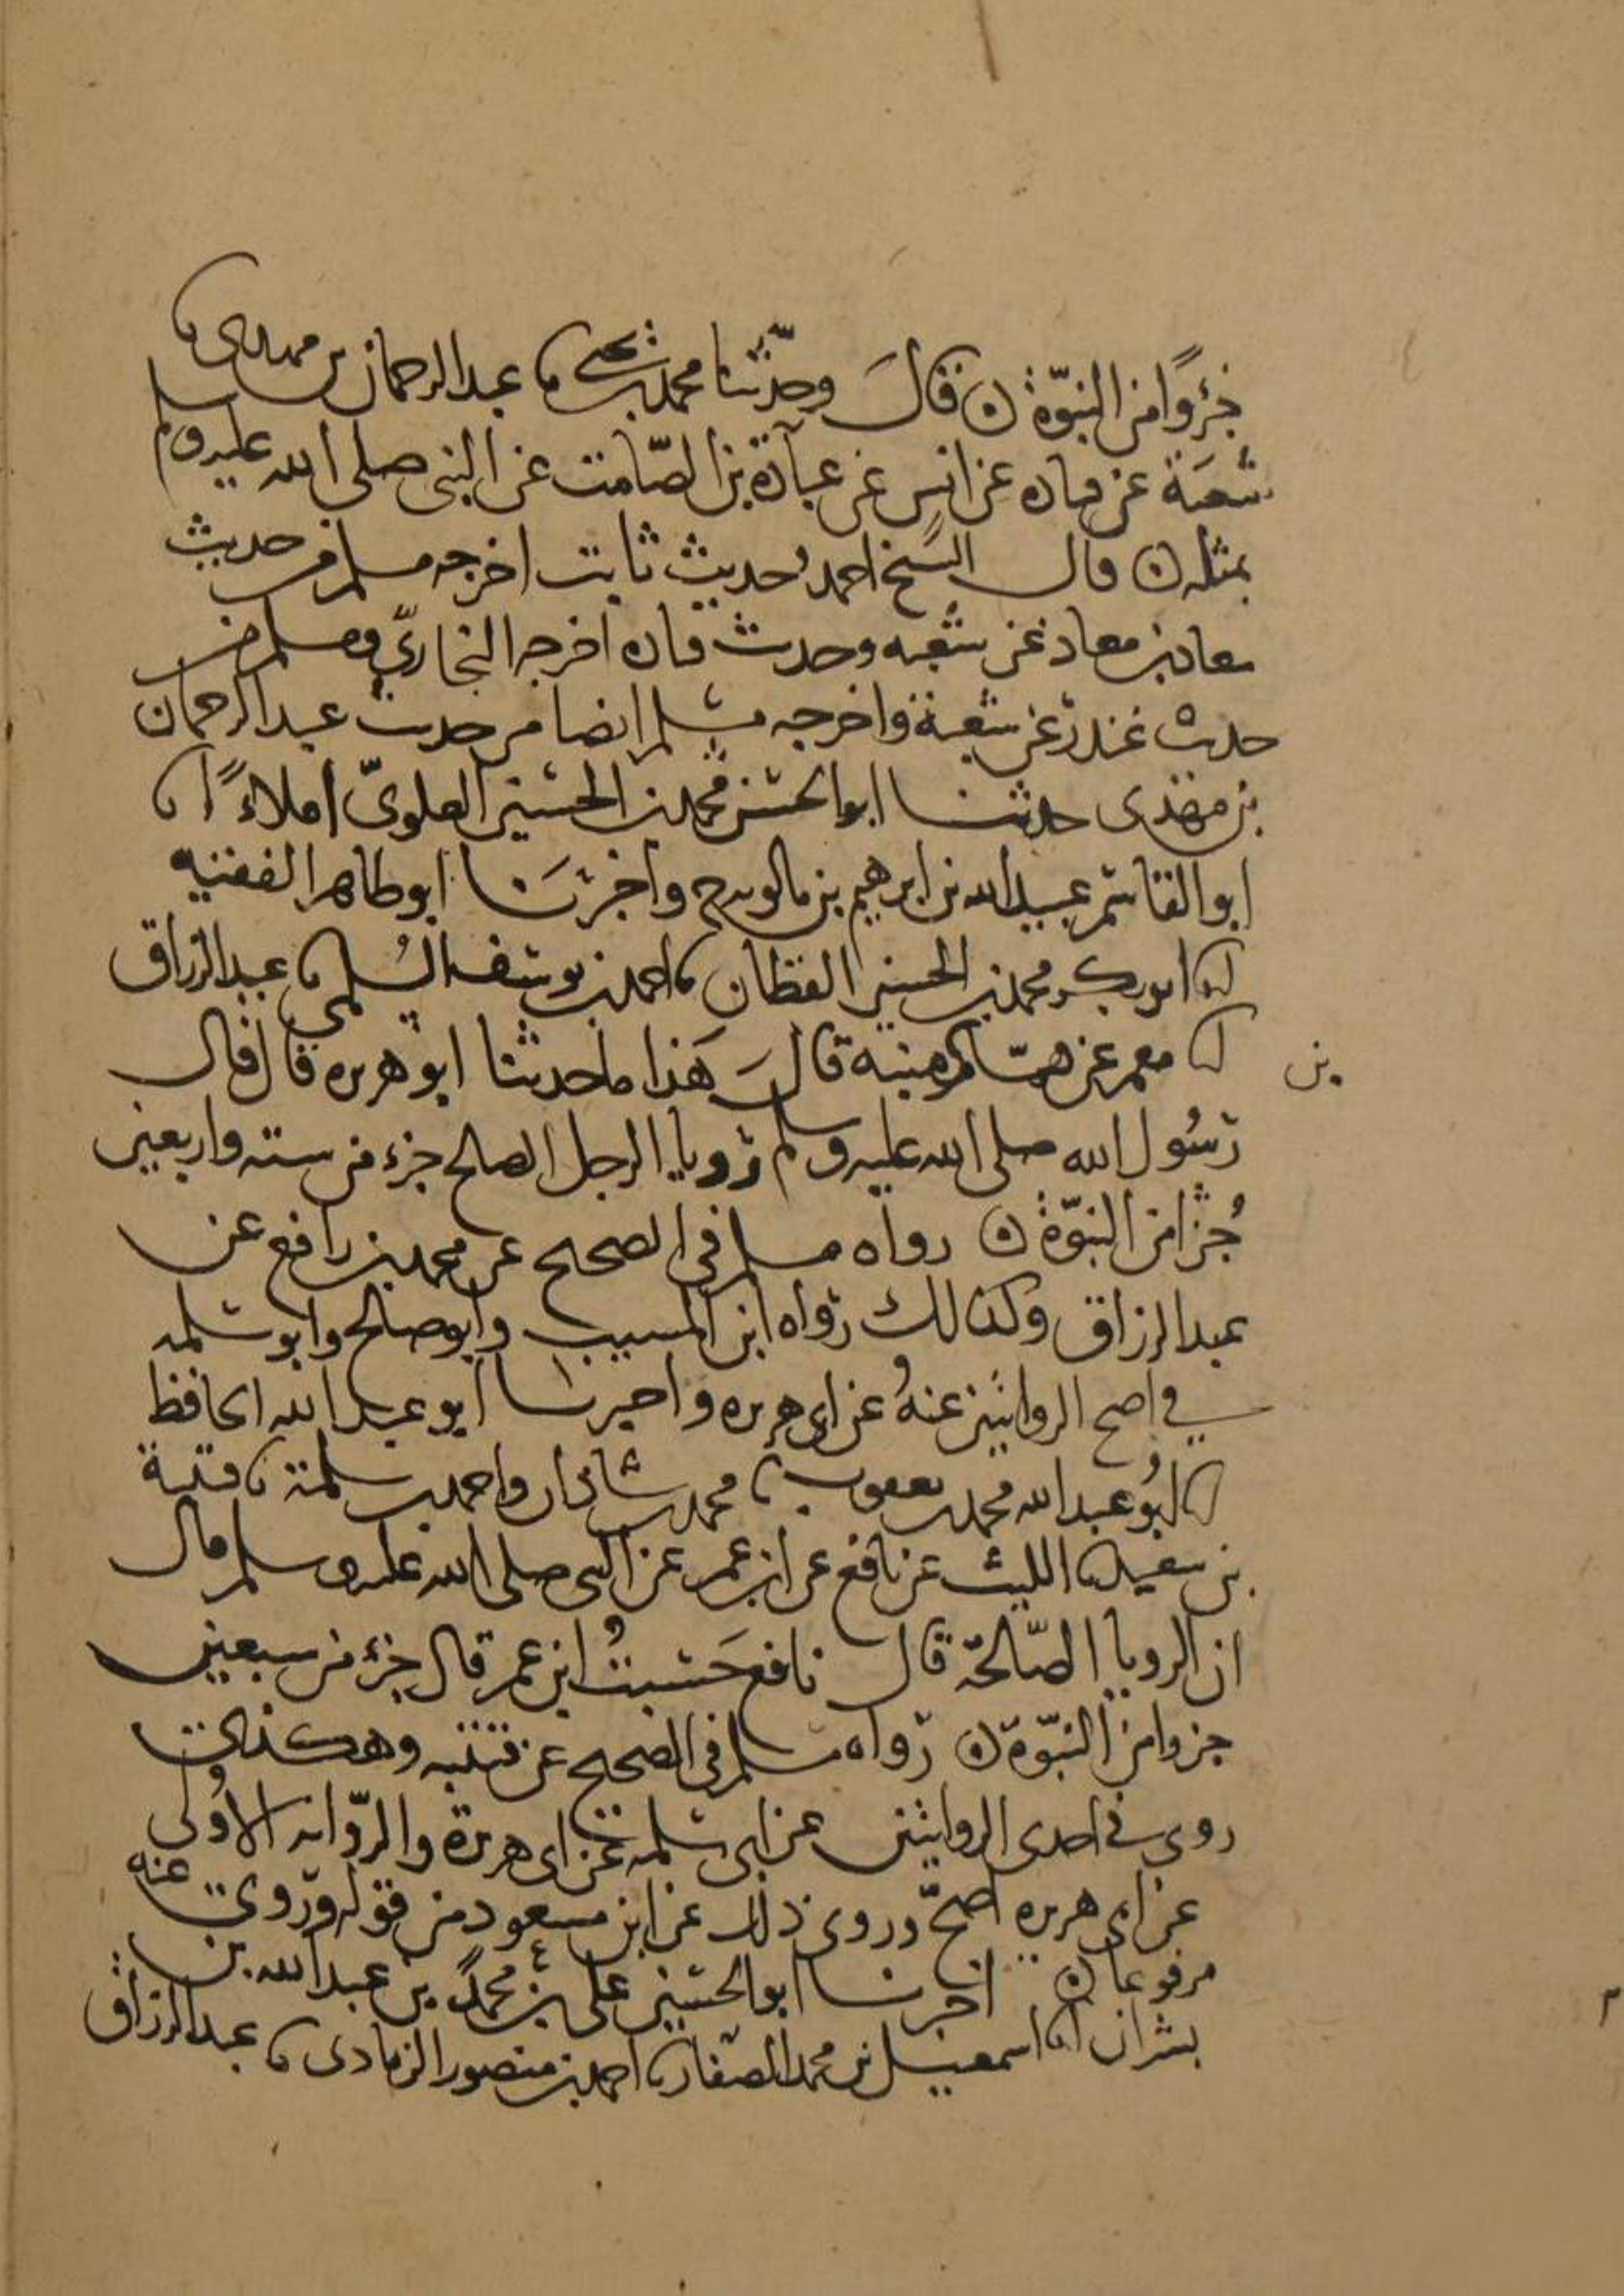 جزءًا من النبوّة ن قال وحدّثنا محمد بن يحيى نا عبد الرحمان بن مهدى نا
شعبَة عن قتاده عن انس عن عبادة بن الصّامت عن النبى صلى الله عليه وسلم
بمثله ن قال الشيخ احمد حديث ثابت اخرجه مسلم من حديث
معاذ بن معاذ عن شعبه وحديث قتاده اخرجه البخاريّ ومسلم من
حديث غندر عن شعبة واخرجه مسلم ايضا من حديث عبد الرحمان
بن مهدى حدثنا ابو الحسن محمد بن الحسين العلوىّ املاءً انا
ابو القاسم عبيد الله بن ابرهيم بن بالويه ح واخبرَنا ابو طاهر الفقيه
انا ابو بكر محمد بن الحسين القطان نا احمد بن يوسف السُلمى نا عبد الرزاق
انا معمر عن همّام بن منبه قالَ هَذا ما حدثنا ابو هريره قال قال
رَسُول الله صلى الله عليه وسلم رويا الرجل الصالح جزء من سته واربعين
جُزا من النبوّة ن رواه مسلم فى الصحيح عن محمد بن رافع عن
عبد الرزاق وكذالك رواه ابن المسيب وابو صالح وابو سلمه
في اصح الروايتين عنهُ عن ابى هريره واخبرنا ابو عبد الله الحافظ
انا ابُو عبد الله محمد بن يعقوب نا محمد بن شاذان واحمد بن سلمة نا قتيبة
بن سعيد نا الليث عن نافع عن ابن عمر عن النبى صلى الله عليه وسلم قال
ان الرويا الصّالحة قال نافع حَسبتُ ابن عمر قال جزء من سبعين
جزوا من النبّوة ن رواه مسلم فى الصحيح عن قتيبه وهكذى
روى في احدى الروايتين عن ابى سلمه عن ابى هريرة والرّوايه الاُولى
عن ابى هريره اصحّ وروى ذلك عن ابن مسعود من قوله وروى عنه
مرفوعا ن اخبرنا ابو الحسين على بن محمد بن عبد الله بن
بشران انا اسمعيل بن محمد الصفار نا احمد بن منصور الرمادى نا عبد الرزاق
بن